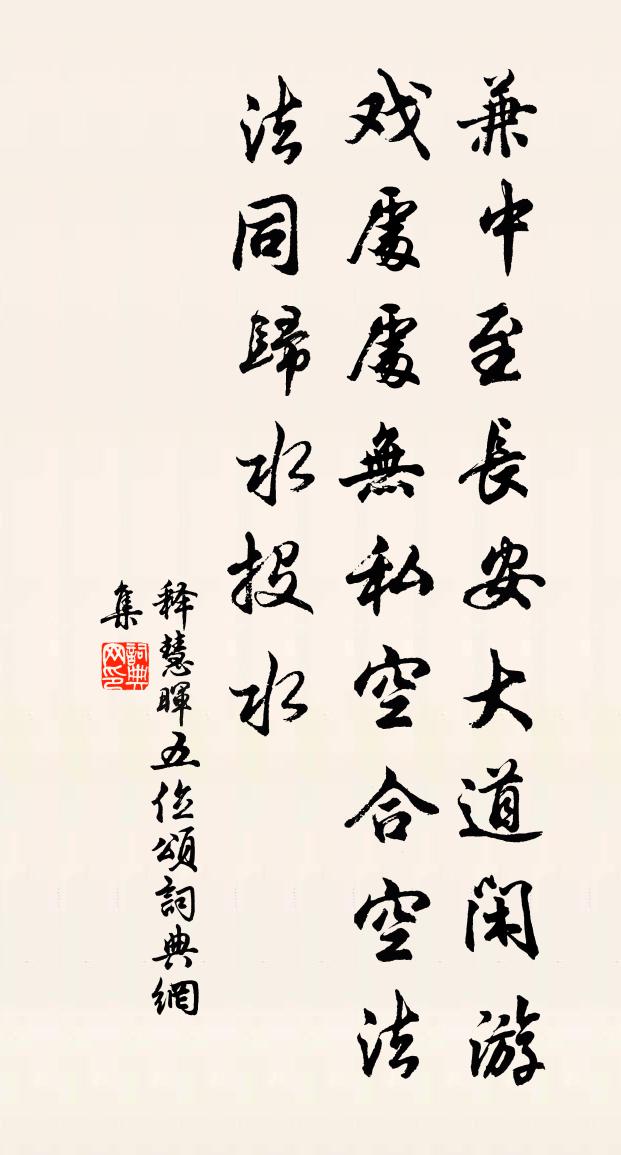 兼中至長安大道闲游
戏處處無私空合空法
法同歸水投水
释慧暉五位頌詞典網
集
詞典
网印